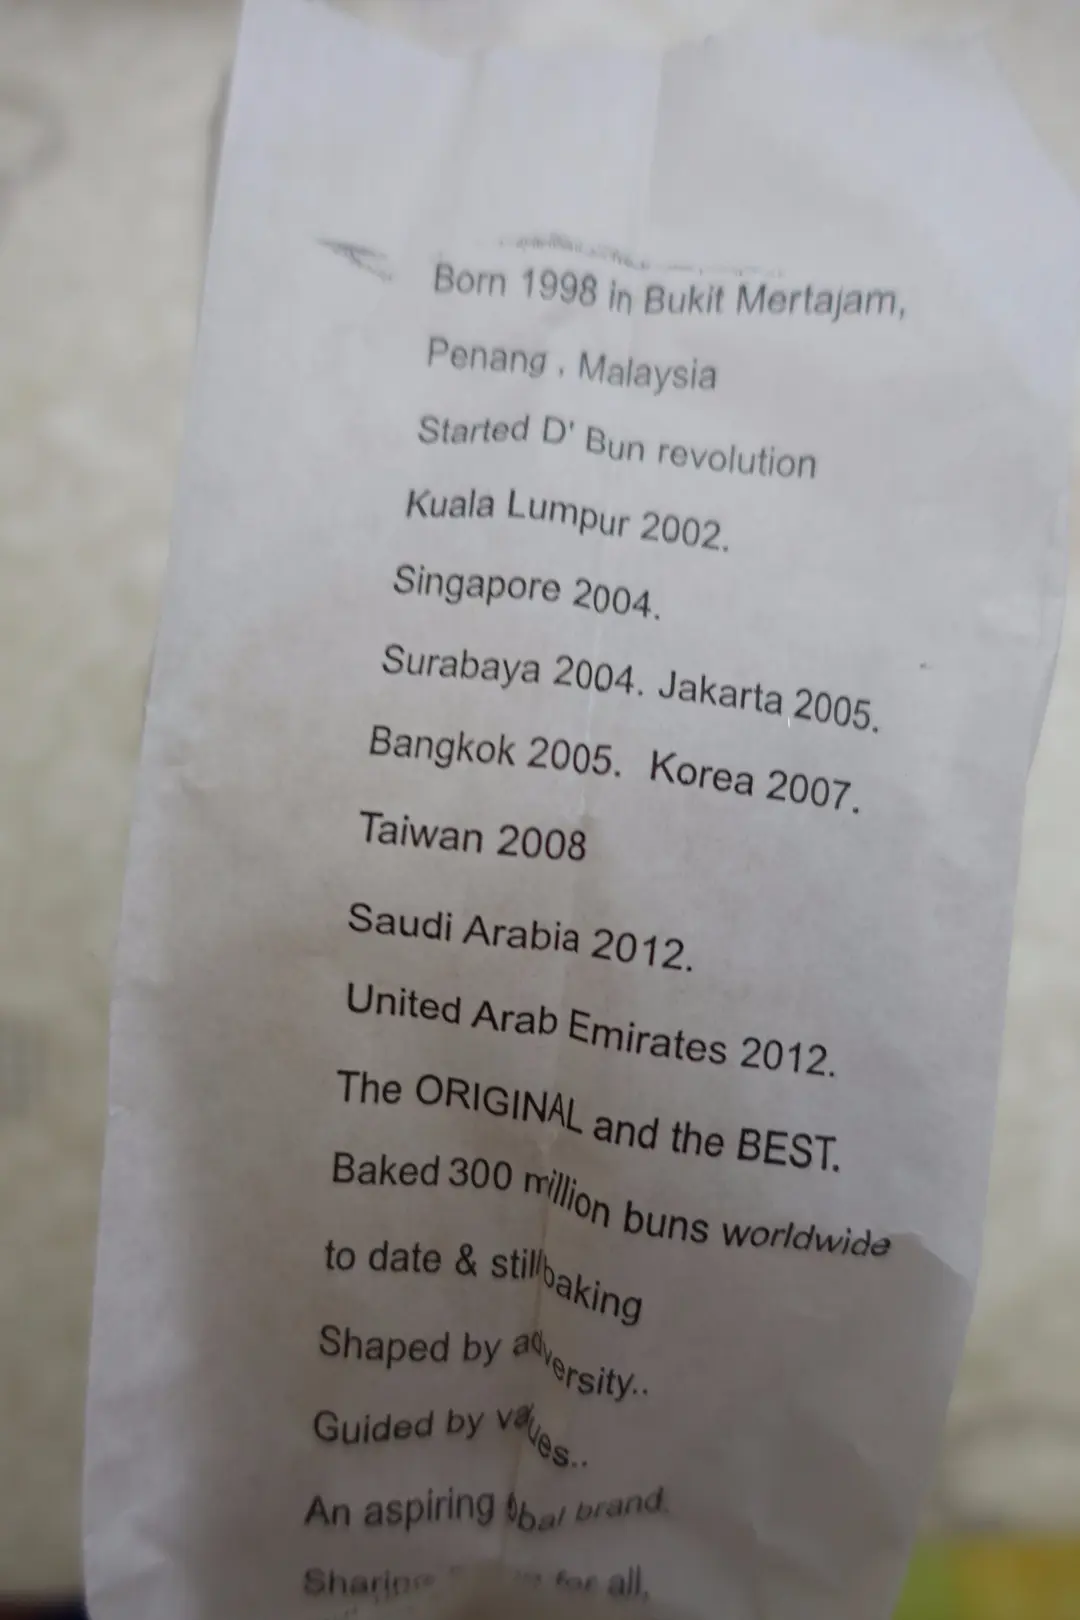 Born 1998 in Bukit Mertajam,
Penang , Malaysia
Started D' Bun revolution
Kuala Lumpur 2002.
Singapore 2004.
Surabaya 2004. Jakarta 2005.
Bangkok 2005. Korea 2007.
Taiwan 2008
Saudi Arabia 2012.
United Arab Emirates 2012.
The ORIGINAL and the BEST.
Baked 300 million buns worldwide
to date & still baking
Shaped by adversity..
Guided by values..
An aspiring brand.
Sharing for all.